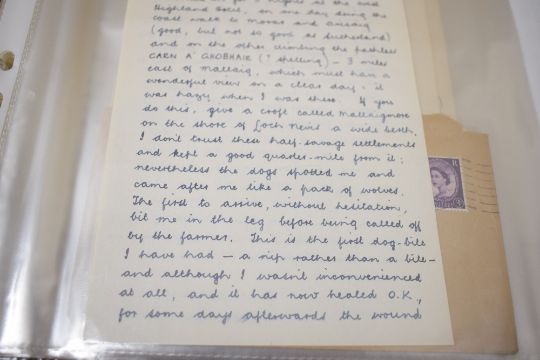 for 3 nights at the
Highland Hotel, on one day doing the
coast walk to Morar and Arisaig
(good, but not so good as Sutherland)
and on the other climbing the pathless
CARN A' GHOBHAIR (? spelling) – 3 miles
east of Mallaig, which must have a
wonderful view on a clear day; it
was hazy when I was there. If you
do this, give a croft called Mallaigmore
on the shore of Loch Nevis a wide berth.
I don't trust these half-savage settlements
and kept a good quarter-mile from it;
nevertheless the dogs spotted me and
came after me like a pack of wolves.
The first to arrive, without hesitation,
bit me in the leg before being called off
by the farmer. This is the first dog-bite
I have had — a nip rather than a bite —
and although I wasn't inconvenienced
at all, and it has now healed O.K.,
for some days afterwards the wound